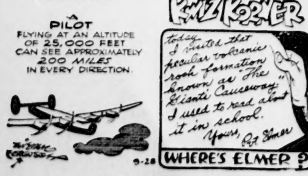 A
PILOT
FLYING AT AN ALTITUDE
OF 25,000 FEET
CAN SEE APPROXIMATELY
200 MILES
IN EVERY DIRECTION.
9-28
KWIZ KORNER
today
I visited that
peculiar volcanic
rock formation
known as "The
Giants Causeway"
I used to read about
it in school.
Yours, Pvt Elmer
WHERE'S ELMER?